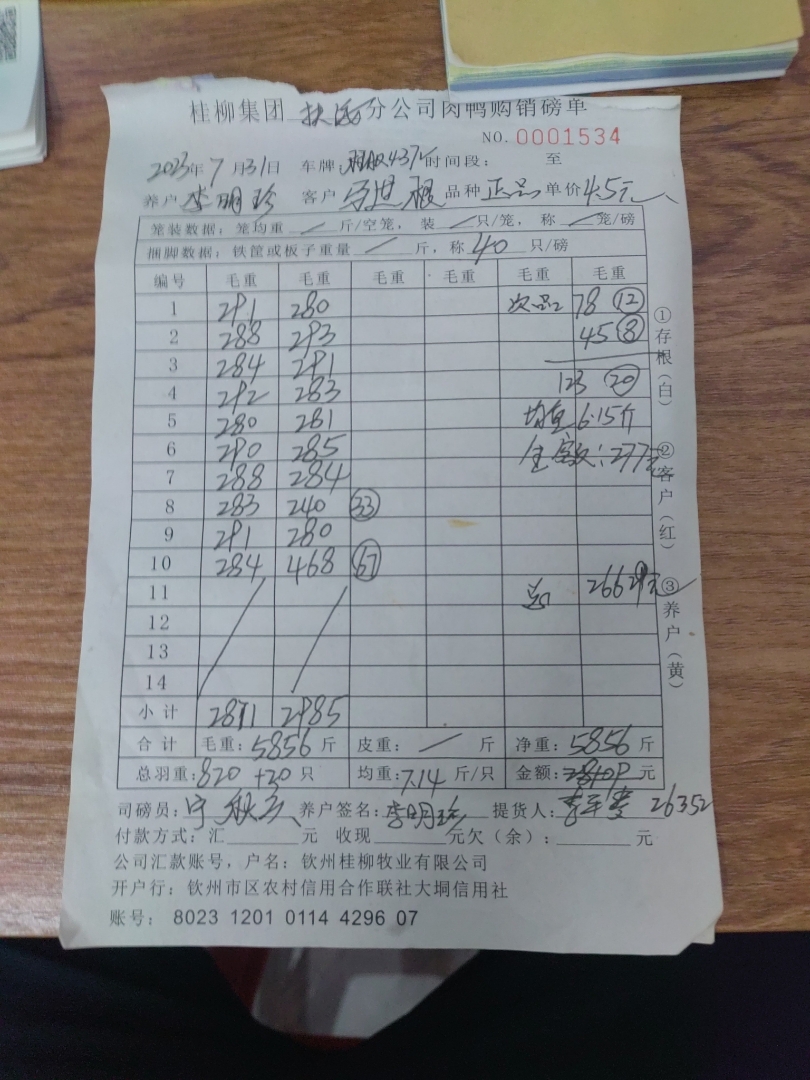 桂柳集团 分公司肉鸭购销磅单
NO. 0001534
2023年7月31日 车牌: 时间段: 至
养户 李明珍 客户 品种 正品 单价 4.5元
笼装数据: 笼均重 / 斤/空笼, 装 / 只/笼, 称 / 笼/磅
捆脚数据: 铁筐或板子重量 / 斤, 称 40 只/磅
编号 毛重 毛重 毛重 毛重 毛重 毛重
1 291 280 次品2 78 ⑫
2 288 293 45 ⑧
3 284 291
4 292 283 123 ⑳
5 280 281 均重 6.15斤
6 290 285 277元
7 288 284
8 283 240 ㉝
9 291 280
10 284 468 67
11 总 26629元
12
13
14
小计 2871 2985
合计 毛重: 5856 斤 皮重: / 斤 净重: 5856 斤
总羽重: 820 +20 只 均重: 7.14 斤/只 金额: 元
司磅员: 养户签名: 李明珍 提货人: 26352
付款方式: 汇 元 收现 元欠(余): 元
公司汇款账号, 户名: 钦州桂柳牧业有限公司
开户行: 钦州市区农村信用合作联社大垌信用社
账号: 8023 1201 0114 4296 07
①存根(白) ②客户(红) ③养户(黄)